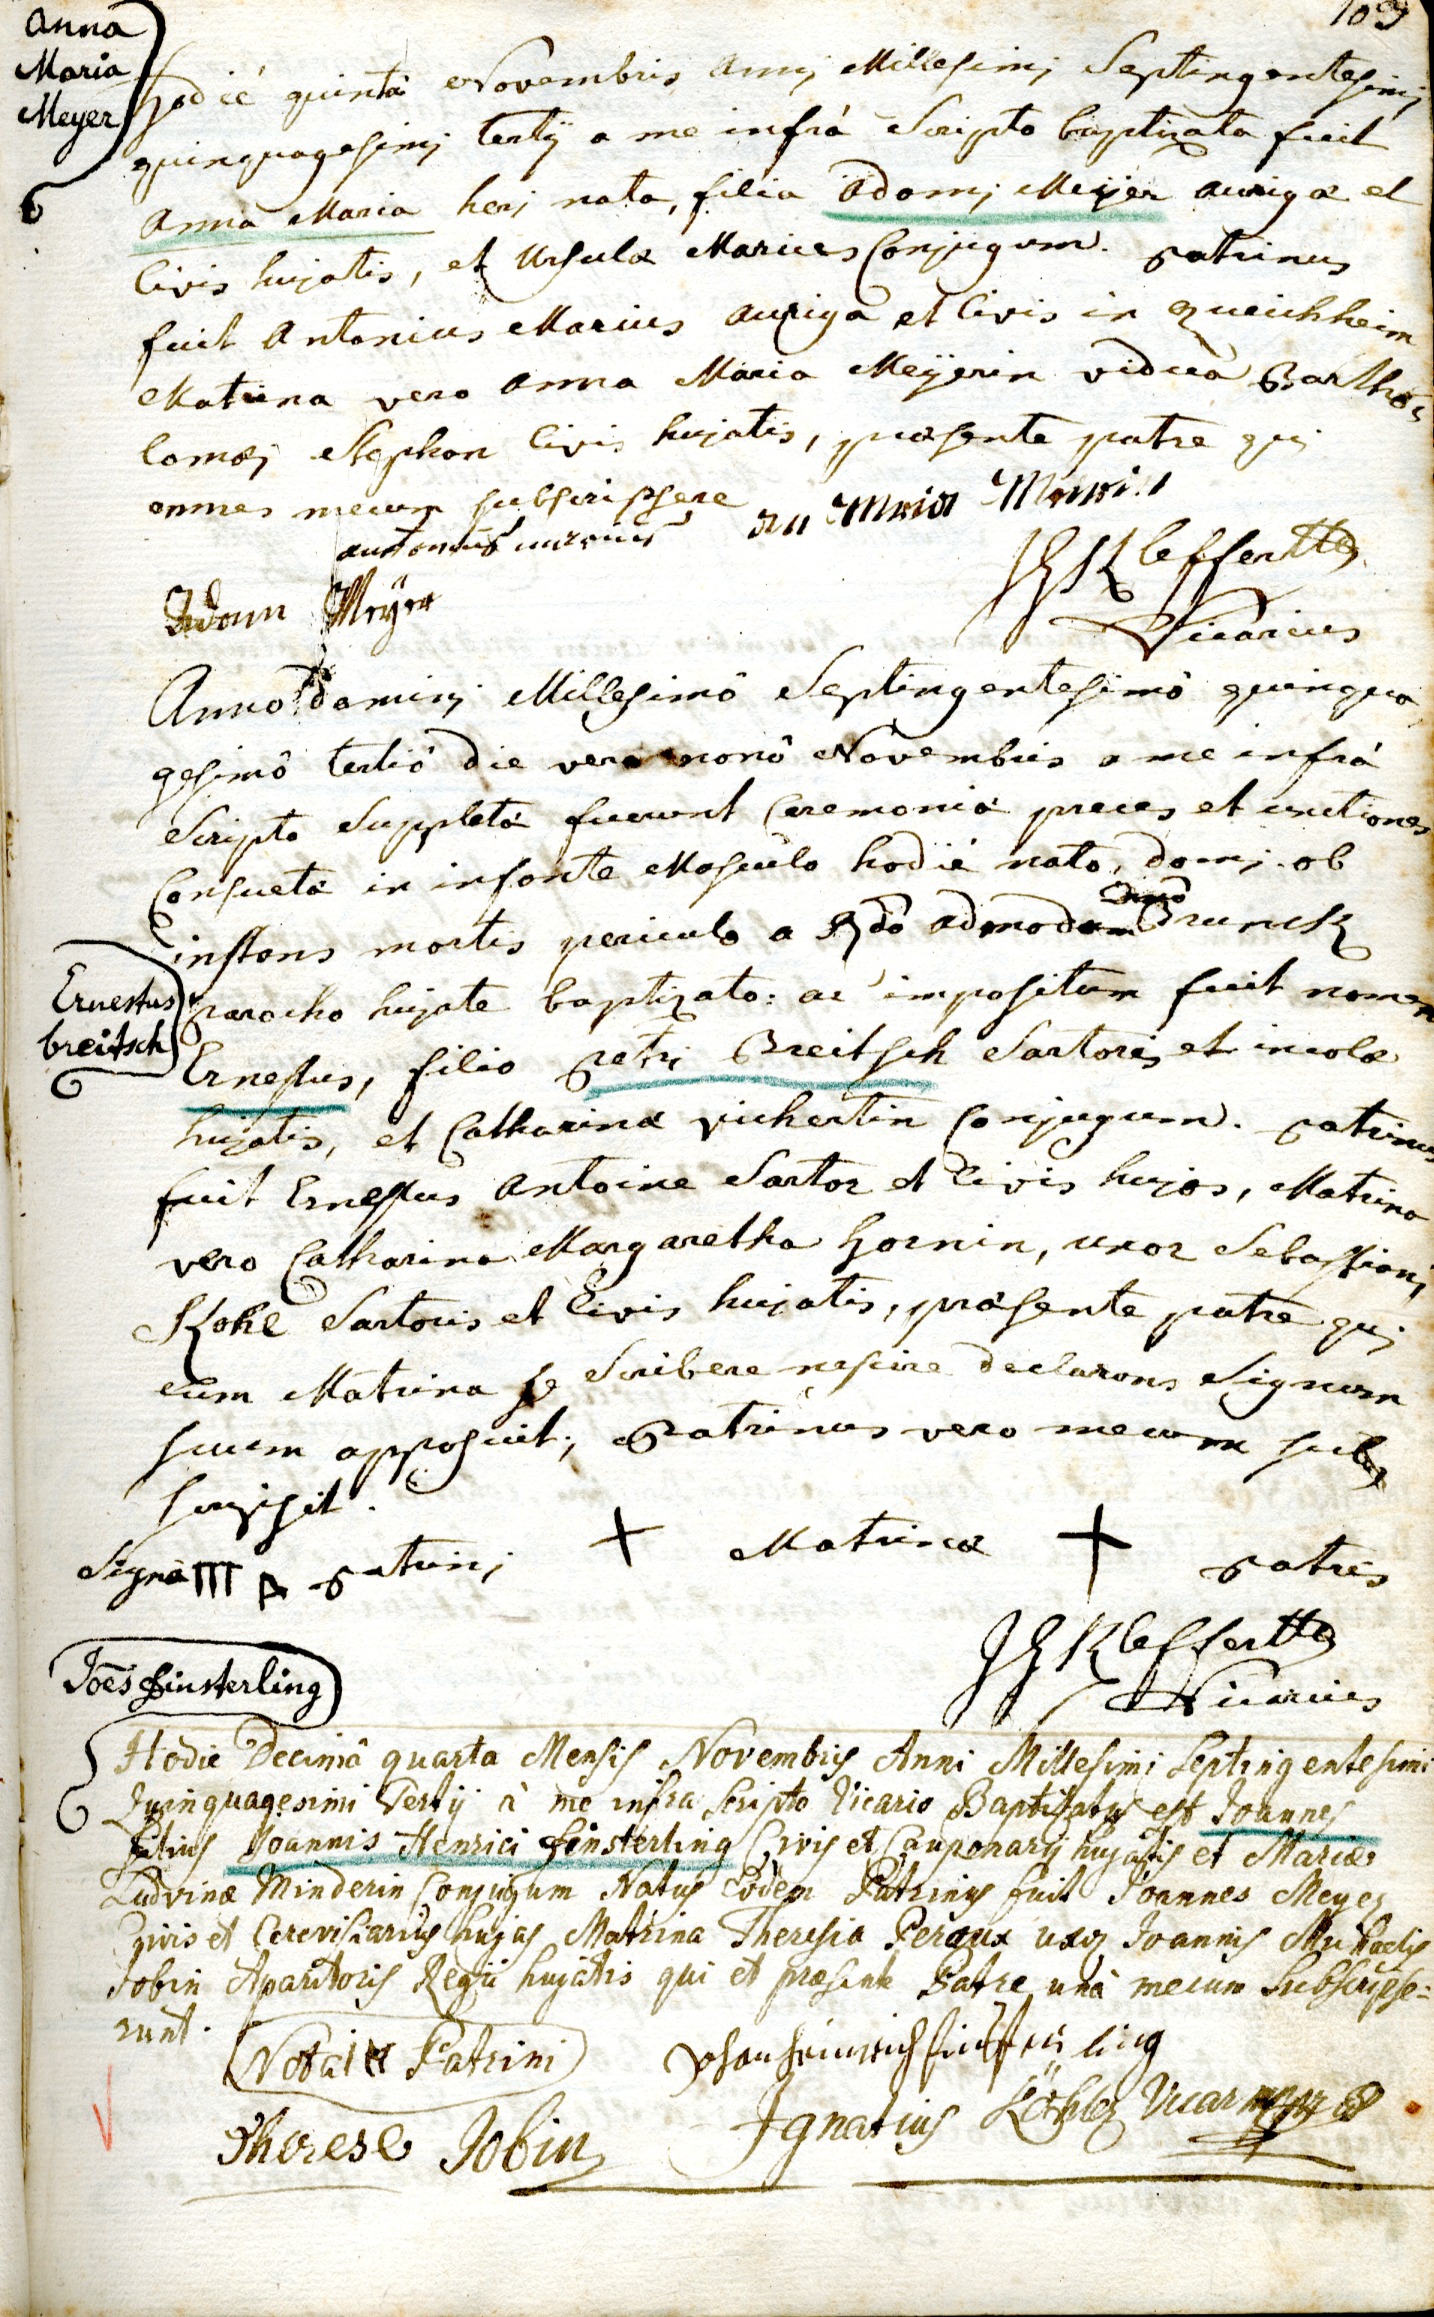 109
Anna
Maria
Meyer
Hodié quintâ Novembris Annj Millesimj Septingentesimj
quinquagesimj tertij a me infrà Scripto baptizata fuit
Anna Maria herj nata, filia Adamj Meÿer Aurigæ et
Civis hujatis, et Ursulæ Marius Conjugum. Patrinus
fuit Antonius Marius Auriga et Civis in Queichheim
Matrina vero Anna Maria Meÿerin vidua Bartho-
lomæj Stephan Civis hujatis, præsente patre quj
omnes mecum subscripsere
antonius marius
Adam Meÿer
JGKleffer
Vicarius
Anno dominj Millesimô Septingentesimô quinqua
gesimô tertiô die vero nonô Novembris a me infrà
Scripto Suppletæ fuerunt Ceremoniæ preces et unctiones
Consuetæ in infante Masculo hodié nato, domj ob
instans mortis periculo a Rdô admodum Dnô Brunck
parocho hujate baptizato: ac impositum fuit nomen
Ernestus
breitsch
Ernestus, filio Petrj Breitsch Sartoris et incolæ
hujatis, et Catharinæ vichertin Conjugum. Patrinus
fuit Ernestus Antoine Sartor et Civis hujas, Matrina
vero Catharina Margaretha Hornin, uxor Sebastianj
Kohl Sartoris et Civis hujatis, præsente patre quj
cum Matrina se Scribere nescire declarans Signum
suum apposuit; Patrinus vero mecum sub
scripsit.
Signa Patrinj + Matrinæ + Patris
JGKleffer
Vicarius
Joes finsterling
Hodie Decimâ quarta Mensis Novembris Anni Millesimi Septingentesimi
Quinquagesimi Tertij à me infra Scripto Vicario Baptizatus est Joannes
filius Joannis Henrici finsterling Civis et Cauponarij hujatis et Mariæ
Ludvinæ Minderin Conjugum Natus Eodem Patrinus fuit Joannes Meyer
Civis et Cerevisiarius hujas Matrina Theresia Peraux uxor Joannis Michaelis
Jobin Aparitoris Regii hujatis qui et præsente Patre unà mecum Subscripse-
runt.
Nota Patrini
Johan heinrich finsterling
Therese Jobin
Ignatius Köhler Vicarius